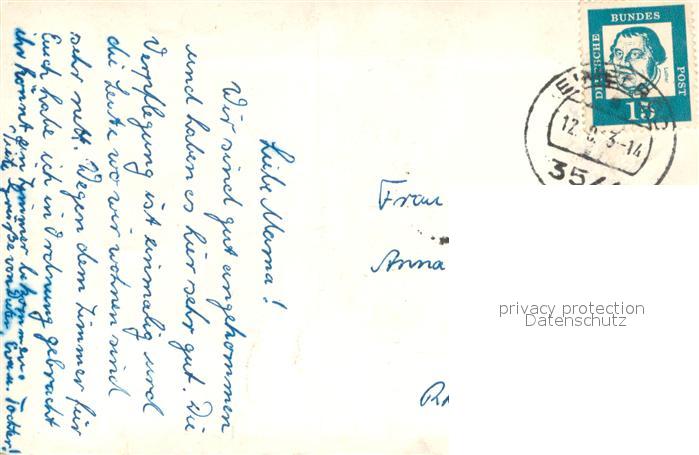 Liebe Mama!
Wir sind gut angekommen
und haben es hier sehr gut. Die
Verpflegung ist einmalig und
die Leute wo wir wohnen sind
sehr nett. Wegen dem Zimmer für
Euch habe ich in Ordnung gebracht
ihr könnt ein Zimmer bekommen.
Viele Grüße von Tochter!
Frau
Anna
DEUTSCHE
BUNDES
POST
15
Luther
12.
3-14
35
privacy protection
Datenschutz